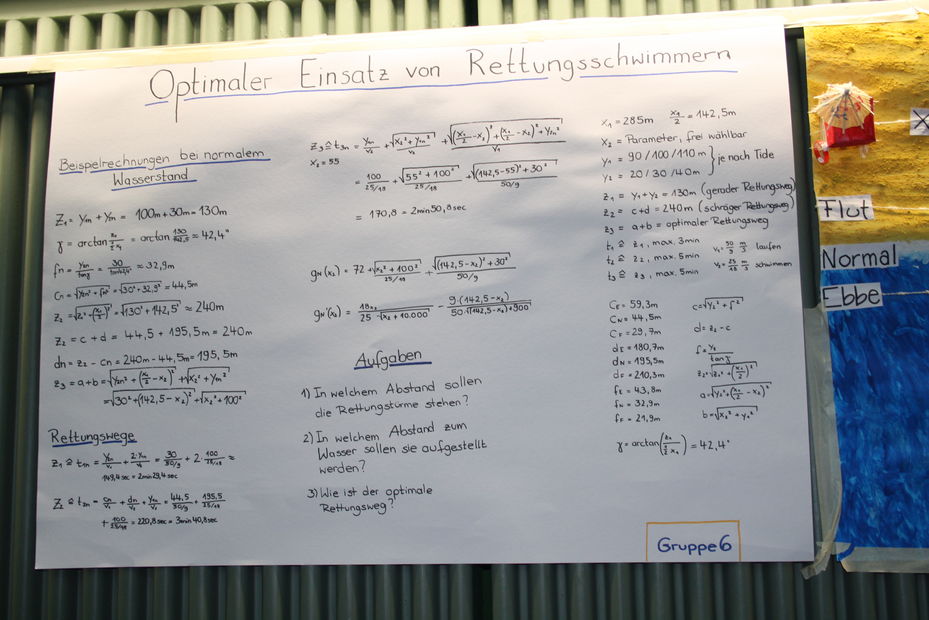 Optimaler Einsatz von Rettungsschwimmern
Beispielrechnungen bei normalem
Wasserstand
Z₁ = yₘ + yₙ = 100m + 30m = 130m
γ = arctan = arctan 130/142,5 ≈ 42,4°
fn = = 30/ ≈ 32,9m
cn = = √30² + 32,9² ≈ 44,5m
z₂ = = √130² + 142,5² ≈ 240m
z₂ = c + d = 44,5 + 195,5m = 240m
dn = z₂ - cn = 240m - 44,5m = 195,5m
z₃ = a + b = √y₂ₙ² + (x₁/2 - x₂)² + √x₂² + y₁ₙ²
= √30² + (142,5 - x₂)² + √x₂² + 100²
Rettungswege
z₁ ≙ t₁ₙ = + = 30/50/9 + 2 · 100/25/18 ≈
149,4 sec = 2min 29,4 sec
z₂ ≙ t₂ₙ = cn/v₁ + dn/v₁ + = 44,5/50/9 + 195,5/25/18
+ 100/25/18 = 220,8 sec = 3min 40,8 sec
z₃ ≙ t₃ₙ = + + √(x₁/2 - x₂)² + (x₁/2 - x₂)² + y₂ₙ²/v₁
x₂ = 55
= 100/25/18 + √55² + 100²/25/18 + √(142,5 - 55)² + 30²/50/9
= 170,8 = 2min 50,8 sec
gN (x₂) = 72 + √x₂² + 100²/25/18 + √(142,5 - x₂)² + 30²/50/9
gN'(x₂) = 18x₂/25 · √x₂ + 10.000 - 9 · (142,5 - x₂)/50 · √(142,5 - x₂)² + 900
Aufgaben
1) In welchem Abstand sollen
die Rettungstürme stehen?
2) In welchem Abstand zum
Wasser sollen sie aufgestellt
werden?
3) Wie ist der optimale
Rettungsweg?
x₁ = 285m x₁/2 = 142,5m
x₂ = Parameter, frei wählbar
y₁ = 90 / 100 / 110 m } je nach Tide
y₂ = 20 / 30 / 40m
z₁ = y₁ + y₂ = 130m (gerader Rettungsweg)
z₂ = c + d = 240m (schräger Rettungsweg)
z₃ = a + b = optimaler Rettungsweg
t₁ ≙ z₁, max. 3min v₁ = 50/9 m/s laufen
t₂ ≙ z₂, max. 5min
t₃ ≙ z₃, max. 5min v₂ = 25/18 m/s schwimmen
CE = 59,3m c = √y₂² + f²
CN = 44,5m
CF = 29,7m d = z₂ - c
dE = 180,7m
dN = 195,5m f = y₂/tan γ
dF = 210,3m z₂ = √z₁² + (x₁/2)²
fE = 43,8m a = √y₂² + (x₁/2 - x₂)²
fN = 32,9m
fF = 21,9m b = √x₂² + y₁²
γ = arctan = 42,4°
Gruppe 6
X
Flut
Normal
Ebbe